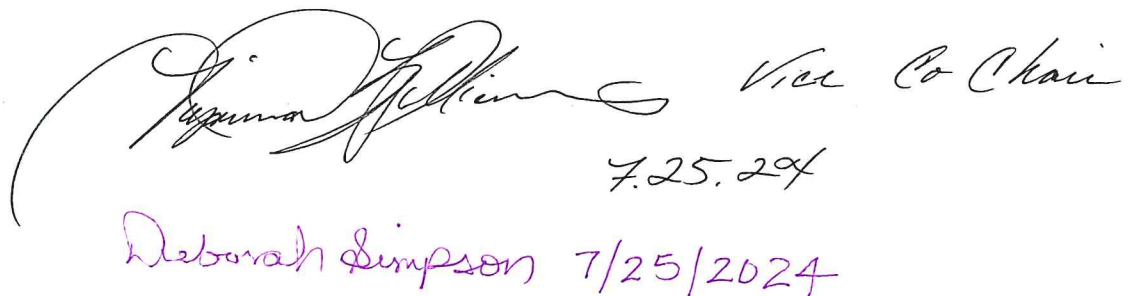 Williams Vice Co Chair
7.25.24
Deborah Simpson 7/25/2024